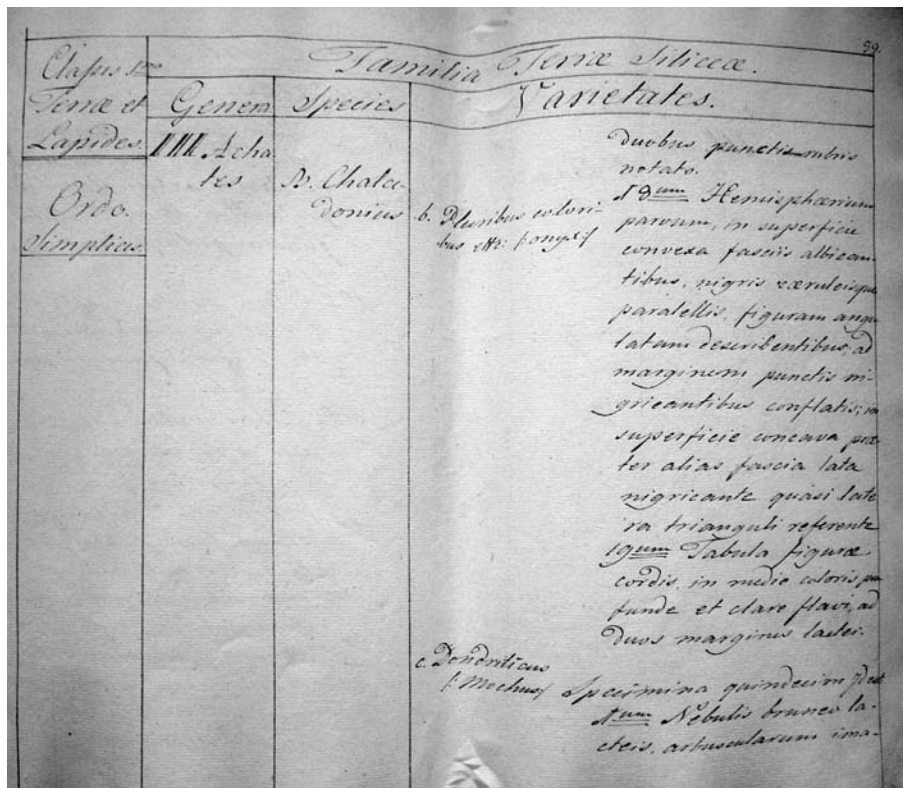 59.
Classis 1ma
Terræ et
Lapides.
Ordo.
Simplices.
Familia Terræ Siliceæ.
Genera
Species
Varietates.
Acha
tes
B. Chalce-
donius
b. Pluribus colori-
bus &c: (:onyx:)
duobus punctis rubris
notato.
18um Hemisphærium
parvum, in superficie
convexa fasciis albican-
tibus, nigris cæruleisque
paralellis, figuram angu-
latam describentibus, ad
marginem punctis ni-
gricantibus conflatis; in
superficie concava præ-
ter alias fascia lata
nigricante quasi late
ra trianguli referente
19um Tabula figuræ
cordis, in medio coloris pro
funde et clare flavi, ad
duos margines lactei.
c. Dendriticus
(:Mochus:)
Specimina quindecim
1um Nebulis bruneo la-
cteis, arbuscularum ima-